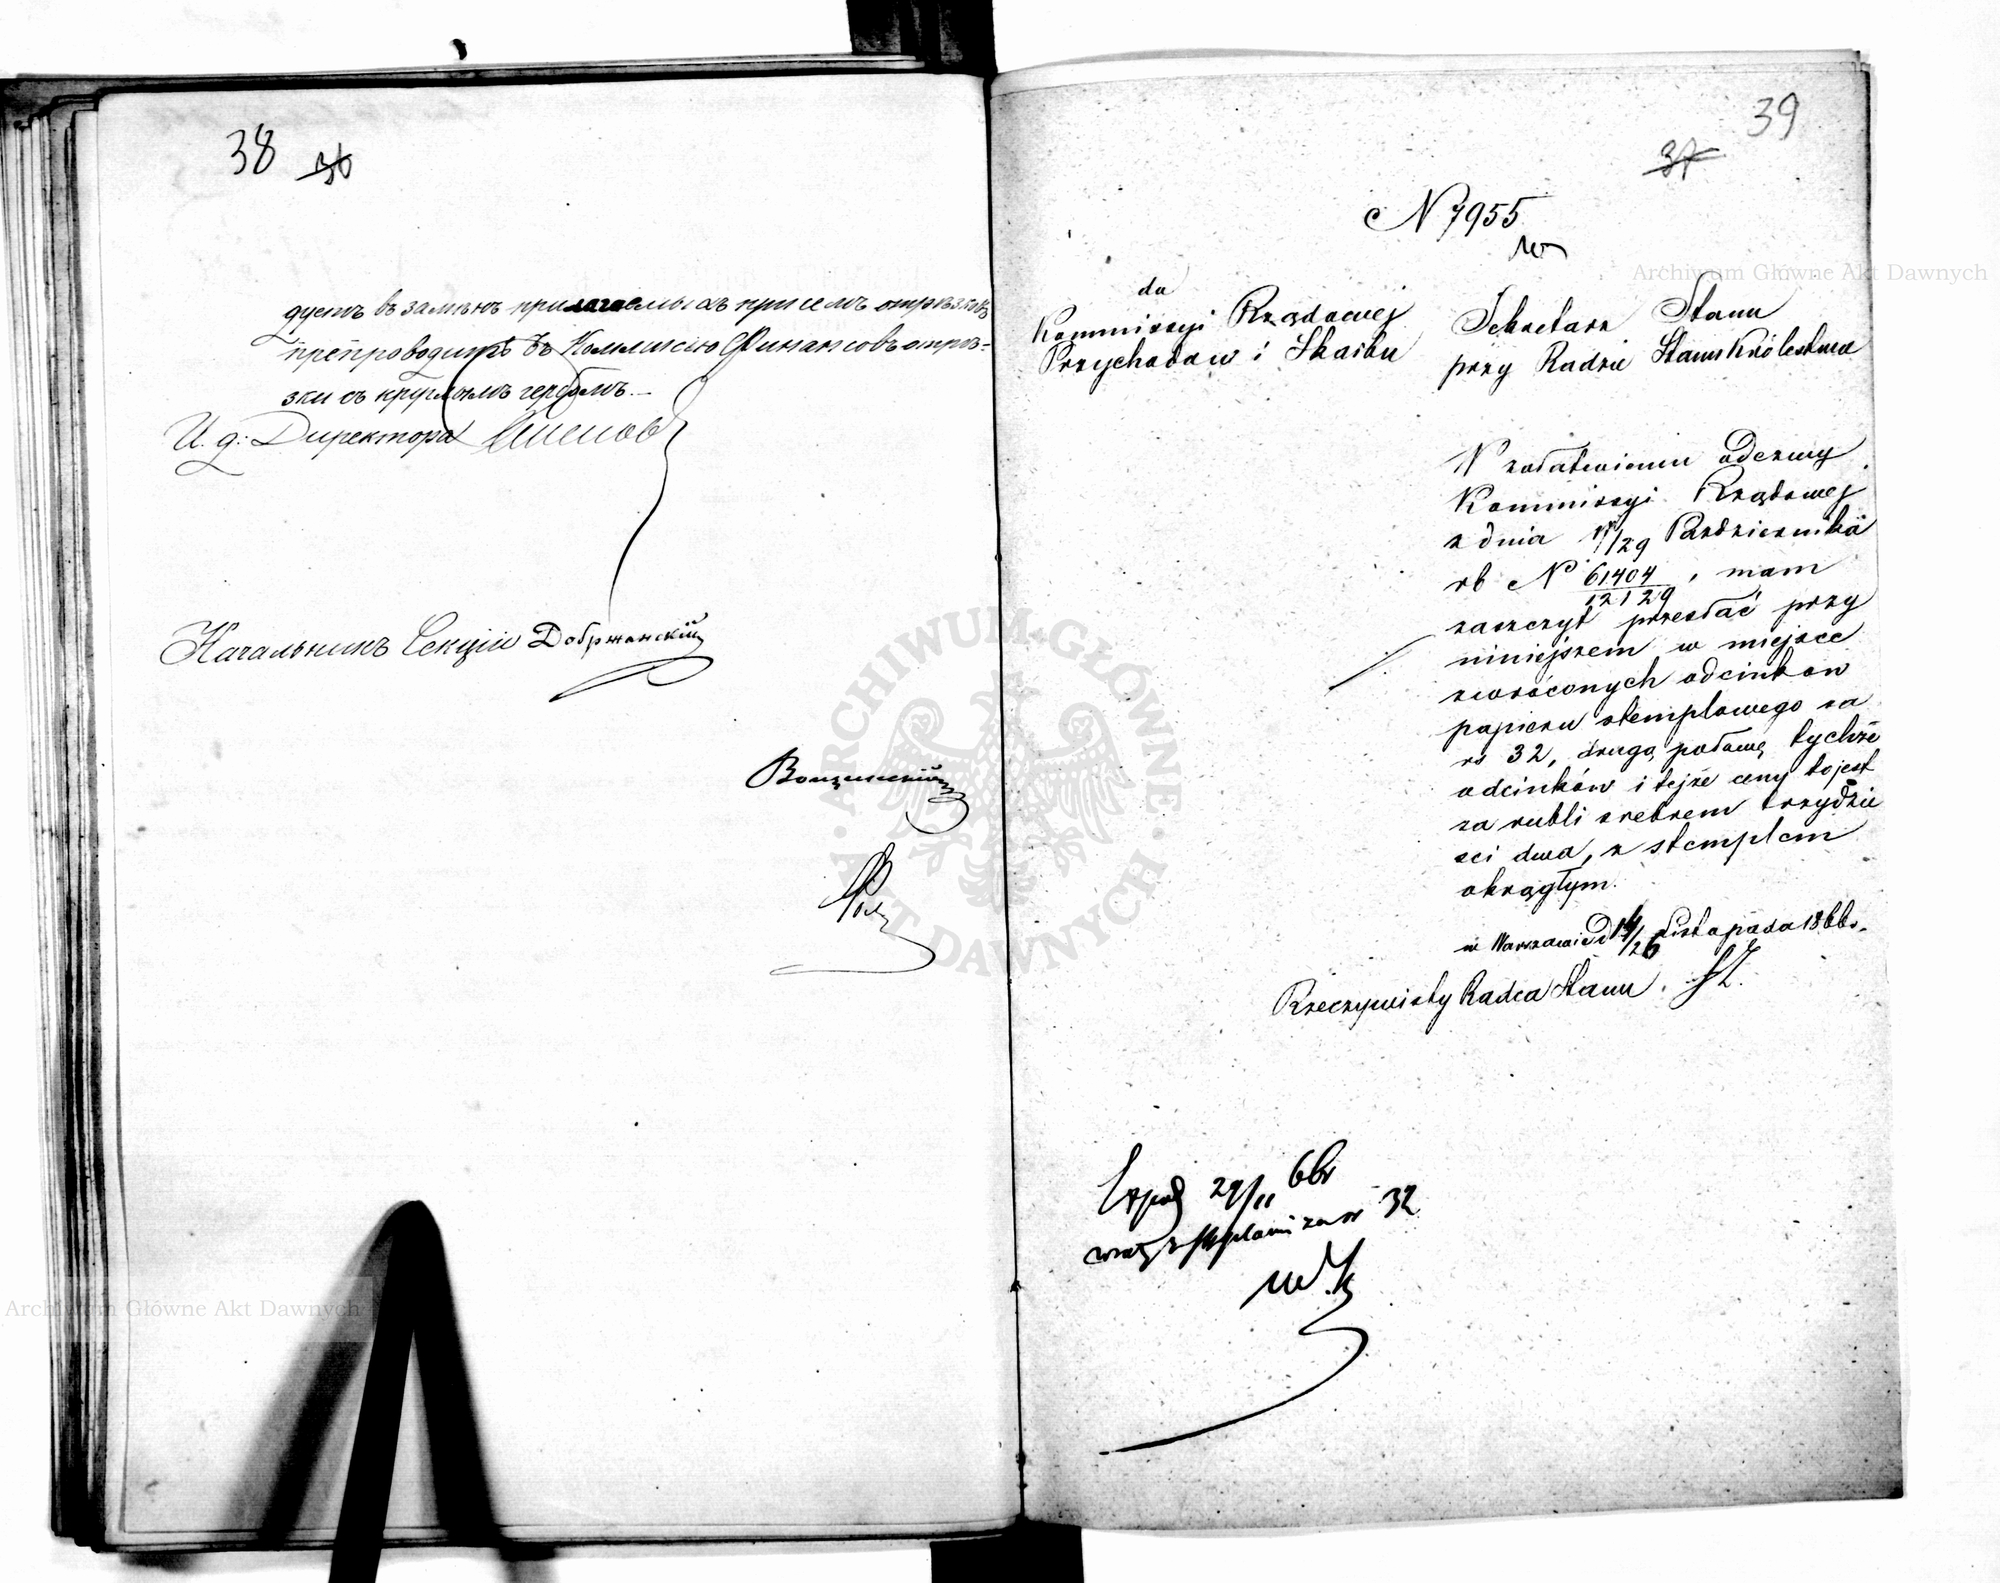 38 36
дуетъ въ замѣнъ прилагаемыхъ при семъ отрѣзковъ
препроводить въ Коммисію Финансовъ отрѣ-
зки съ круглымъ гербомъ.—
И. д: Директора
Начальникъ Секціи Добржанскій
39
37
N 7955
do
Kommissyi Rządowej
Przychodow i Skarbu
Sekretarz Stanu
przy Radzie Stanu Królestwa
W załatwieniu odezwy
Kommissyi Rządowej
z dnia 17/29 Października
rb N° 61404/12129, mam
zaszczyt przesłać przy
niniejszem w miejsce
zwróconych odcinkow
papieru stemplowego za
rs 32, drugą połowę tychże
odcinków i tejże ceny to jest
za rubli srebrem trzydzie
sci dwa, z stemplem
okrągłym.
w Warszawie d 14/26 Listopada 1866 r.
Rzeczywisty Radca Stanu
Exped 29/11 66 r
wraz z stęplami za rs 32
Archiwum Główne Akt Dawnych
Archiwum Główne Akt Dawnych
ARCHIWUM GŁÓWNE AKT DAWNYCH